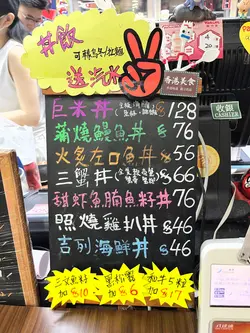 丼飯
可轉烏冬/拉麵
送汽水
香港美食
收銀
CASHIER
巨米丼 $128
蒲燒鰻魚丼 $76
火炙左口魚丼 $56
三蟹丼 $66
甜蝦魚腩魚籽丼 $76
照燒雞扒丼 $46
吉列海鮮丼 $46
三文魚籽
加$10
加$6
加$17